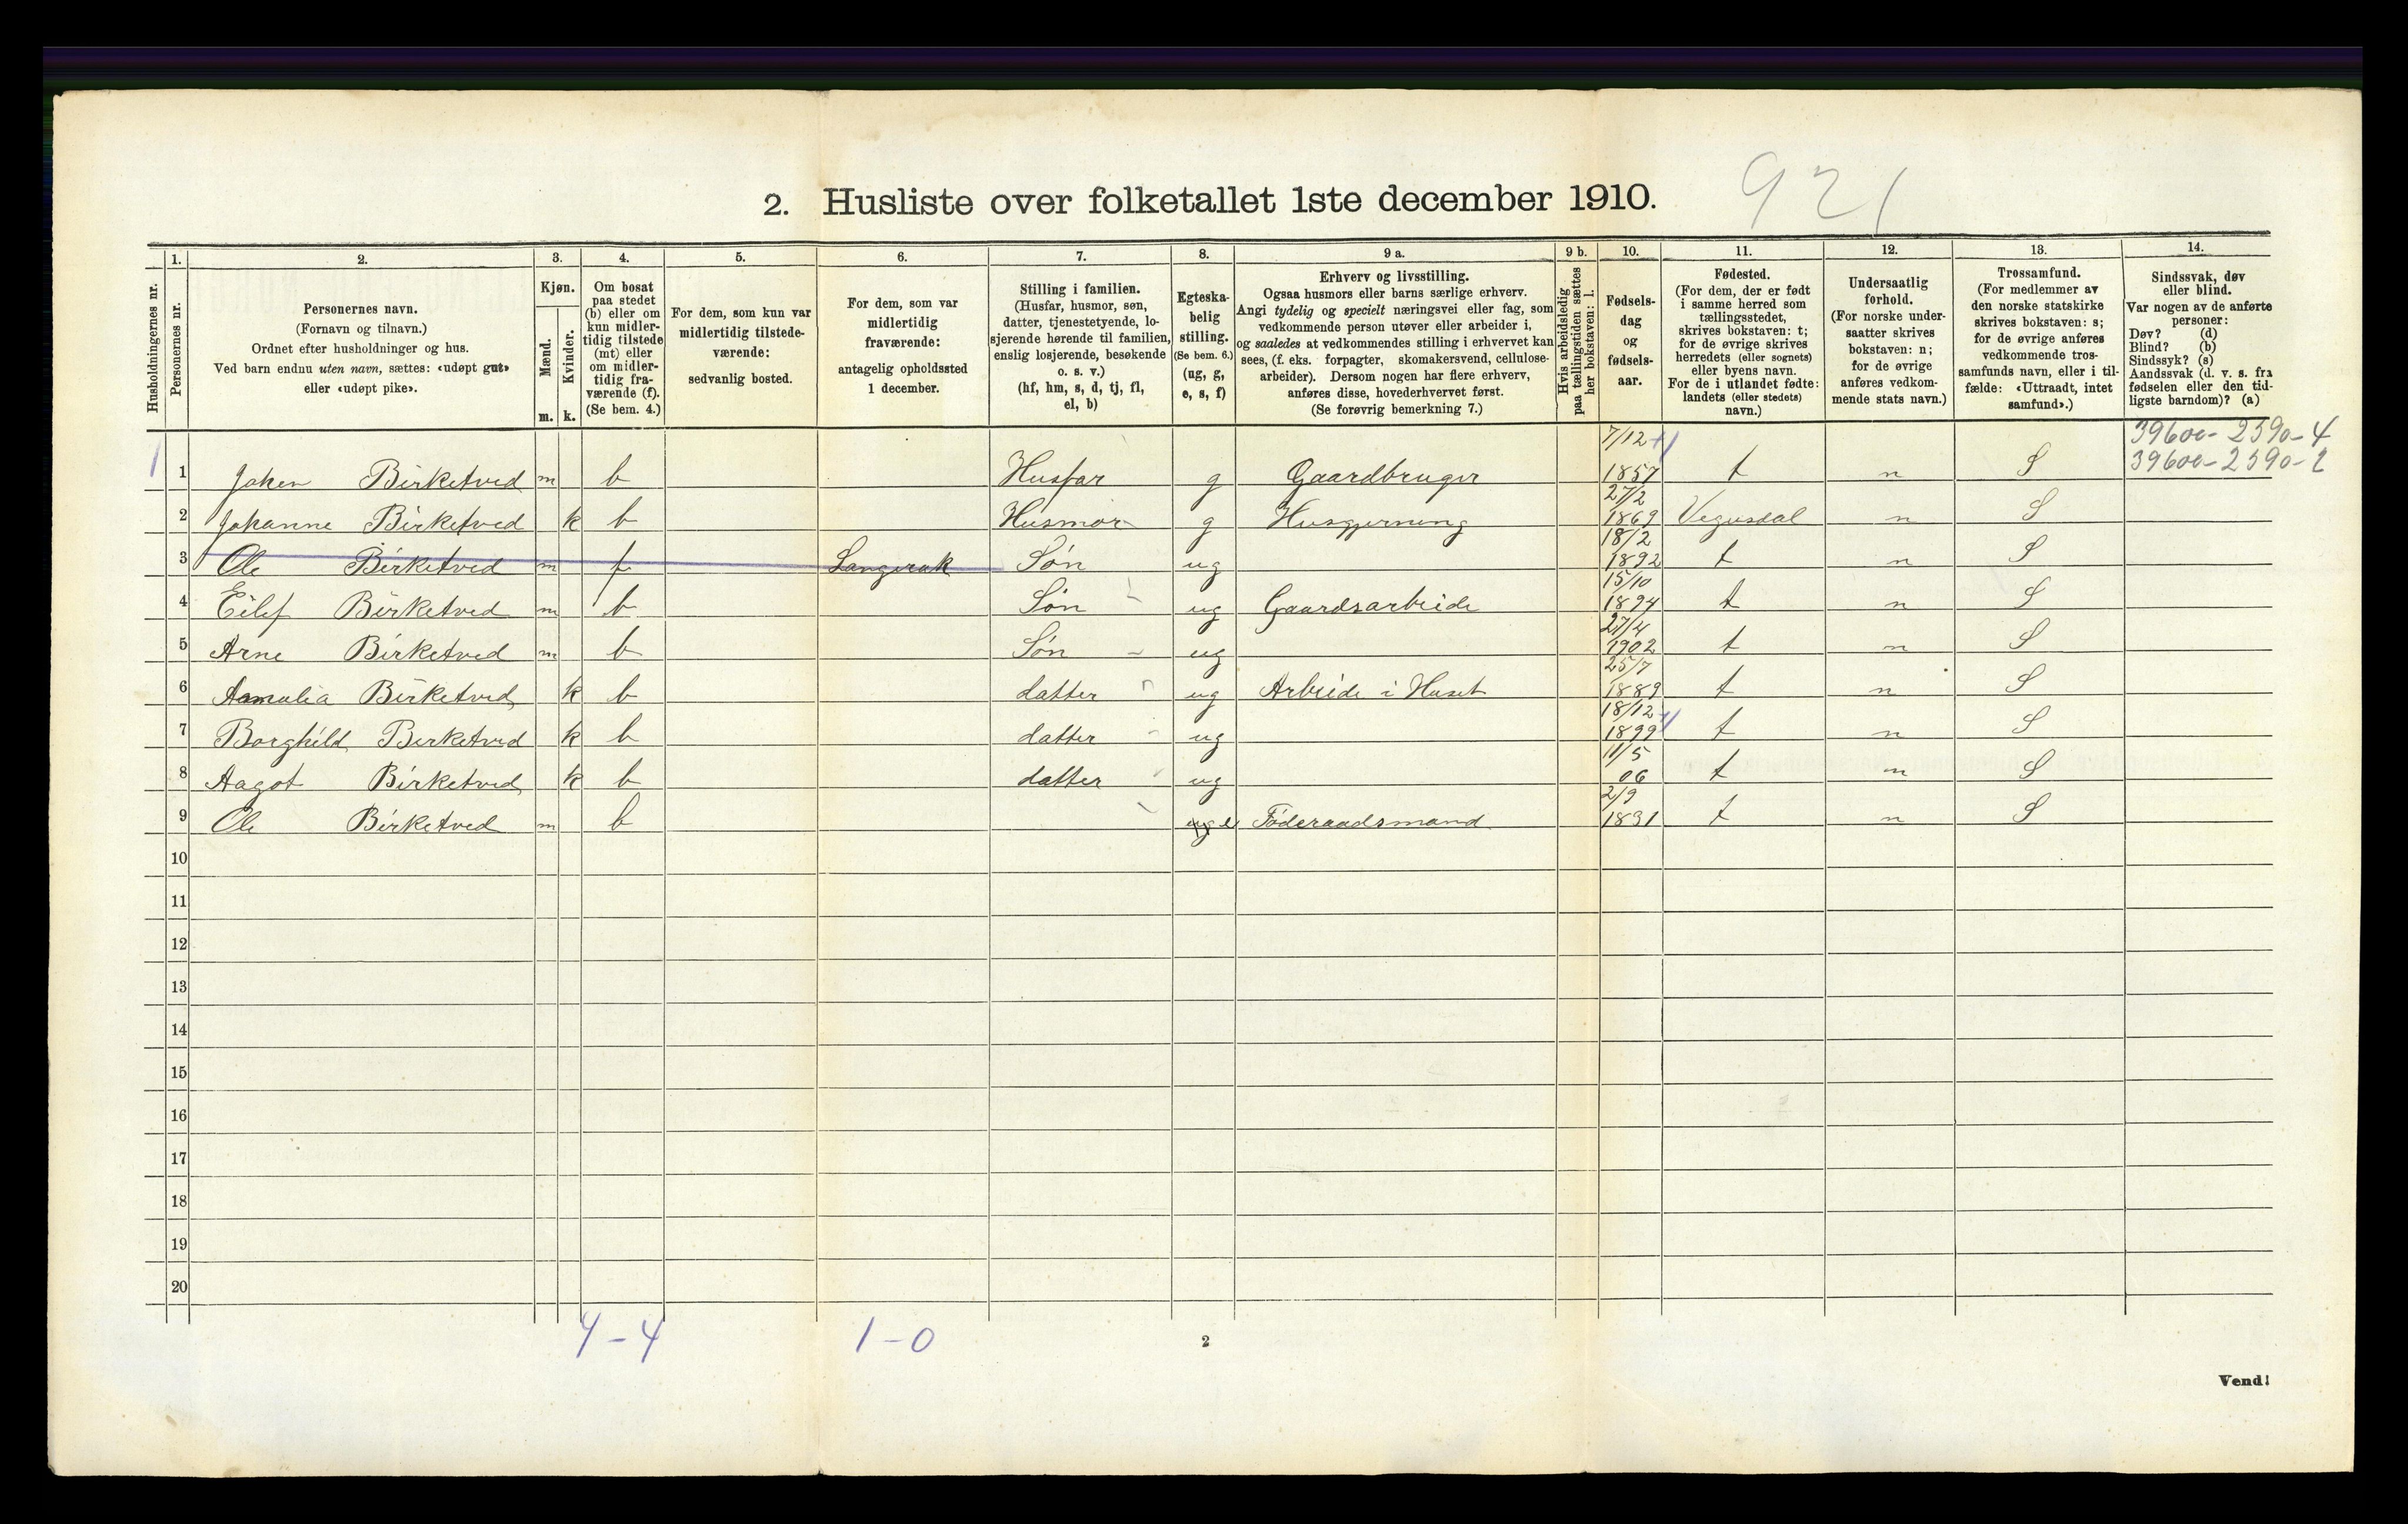 921
2. Husliste over folketallet 1ste december 1910.
1. 2. 3. 4. 5. 6. 7. 8. 9 a. 9 b. 10. 11. 12. 13. 14.
Husholdningernes nr.
Personernes nr.
Personernes navn.
(Fornavn og tilnavn.)
Ordnet efter husholdninger og hus.
Ved barn endnu uten navn, sættes: «udøpt gut»
eller «udøpt pike».
Kjøn.
Mænd.
m.
Kvinder.
k.
Om bosat
paa stedet
(b) eller om
kun midler-
tidig tilstede
(mt) eller
om midler-
tidig fra-
værende (f).
(Se bem. 4.)
For dem, som kun var
midlertidig tilstede-
værende:
sedvanlig bosted.
For dem, som var
midlertidig
fraværende:
antagelig opholdssted
1 december.
Stilling i familien.
(Husfar, husmor, søn,
datter, tjenestetyende, lo-
sjerende hørende til familien,
enslig losjerende, besøkende
o. s. v.)
(hf, hm, s, d, tj, fl,
el, b)
Egteska-
belig
stilling.
(Se bem. 6.)
(ug, g,
e, s, f)
Erhverv og livsstilling.
Ogsaa husmors eller barns særlige erhverv.
Angi tydelig og specielt næringsvei eller fag, som
vedkommende person utøver eller arbeider i,
og saaledes at vedkommendes stilling i erhvervet kan
sees, (f. eks. forpagter, skomakersvend, cellulose-
arbeider). Dersom nogen har flere erhverv,
anføres disse, hovederhvervet først.
(Se forøvrig bemerkning 7.)
Hvis arbeidsledig
paa tællingstiden sættes
her bokstaven: l.
Fødsels-
dag
og
fødsels-
aar.
Fødested.
(For dem, der er født
i samme herred som
tællingsstedet,
skrives bokstaven: t;
for de øvrige skrives
herredets (eller sognets)
eller byens navn.
For de i utlandet fødte:
landets (eller stedets)
navn.)
Undersaatlig
forhold.
(For norske under-
saatter skrives
bokstaven: n;
for de øvrige
anføres vedkom-
mende stats navn.)
Trossamfund.
(For medlemmer av
den norske statskirke
skrives bokstaven: s;
for de øvrige anføres
vedkommende tros-
samfunds navn, eller i til-
fælde: «Uttraadt, intet
samfund».)
Sindssvak, døv
eller blind.
Var nogen av de anførte
personer:
Døv? (d)
Blind? (b)
Sindssyk? (s)
Aandssvak (d. v. s. fra
fødselen eller den tid-
ligste barndom)? (a)
1 1 Johen Birketved m b Husfar g Gaardbruger 7/12 1857 t n S
2 Johanne Birketved k b Husmor g Husgjerning 27/2 1869 Vegusdal n S
3 Ole Birketved m f Langerak Søn ug 18/2 1892 t n S
4 Eilef Birketved m b Søn ug Gaardsarbeide 15/10 1894 t n S
5 Arne Birketved m b Søn ug 27/4 1902 t n S
6 Amalia Birketved k b datter ug Arbeide i Huset 25/7 1889 t n S
7 Borghild Birketved k b datter ug 18/12 1899 t n S
8 Aagot Birketved k b datter ug 11/5 06 t n S
9 Ole Birketved m b e Føderaadsmand 2/9 1831 t n S
10
11
12
13
14
15
16
17
18
19
20
4-4 1-0
2
Vend!